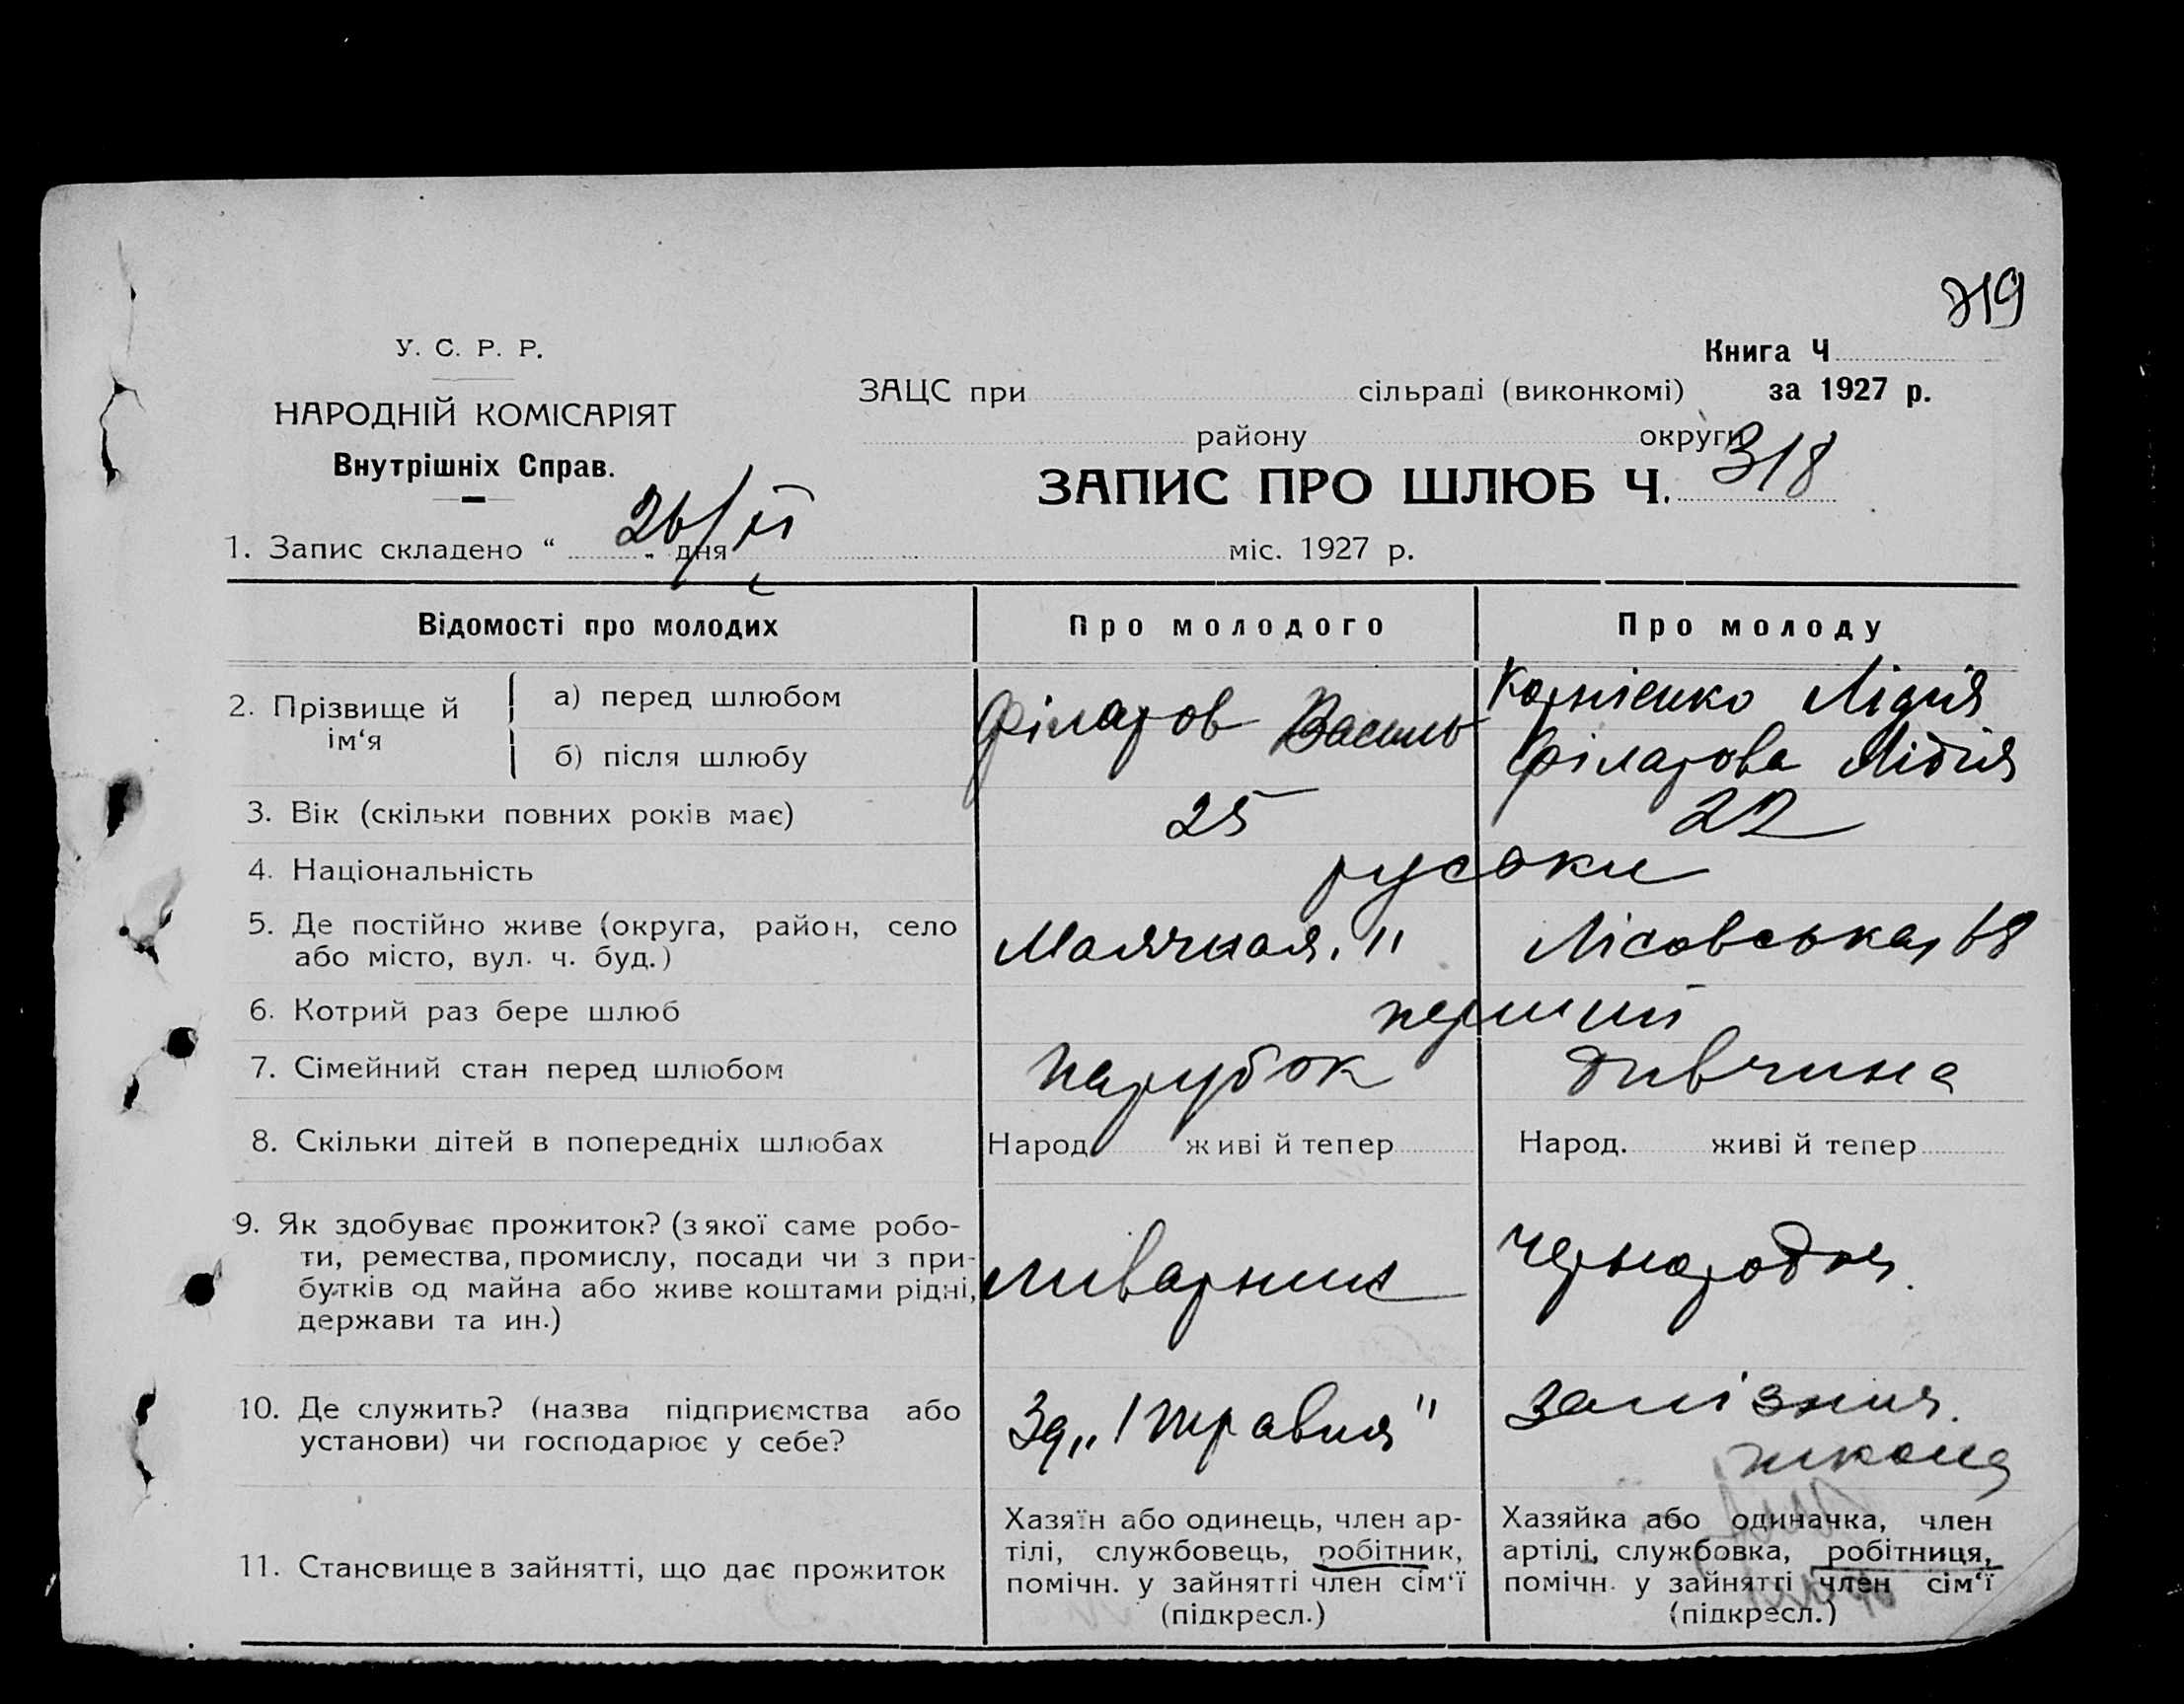 719
У. С. Р. Р.
Книга Ч
НАРОДНІЙ КОМІСАРІЯТ
ЗАЦС при сільраді (виконкомі) за 1927 р.
району округи
Внутрішніх Справ.
ЗАПИС ПРО ШЛЮБ Ч. 318
1. Запис складено “ 26/VI „ дня міс. 1927 р.
Відомості про молодих Про молодого Про молоду
2. Прізвище й ім‘я
а) перед шлюбом Філаров Василь Корнієнко Лідія
б) після шлюбу Філарова Лідія
3. Вік (скільки повних років має) 25 22
4. Національність русски
5. Де постійно живе (округа, район, село Маячная, 11 Лісовська, 68
або місто, вул. ч. буд.)
6. Котрий раз бере шлюб перший
7. Сімейний стан перед шлюбом парубок дивчина
8. Скільки дітей в попередніх шлюбах Народ. живі й тепер Народ. живі й тепер
9. Як здобуває прожиток? (з якої саме робо-
ти, ремества, промислу, посади чи з при-
бутків од майна або живе коштами рідні,
держави та ин.)
ливарник чернороб
10. Де служить? (назва підприємства або
установи) чи господарює у себе?
Зд „1 травня” залізнич.
школа
11. Становище в зайнятті, що дає прожиток
Хазяїн або одинець, член ар-
тілі, службовець, робітник,
помічн. у зайнятті член сім‘ї
(підкресл.)
Хазяйка або одиначка, член
артілі, службовка, робітниця,
помічн. у зайнятті член сім‘ї
(підкресл.)